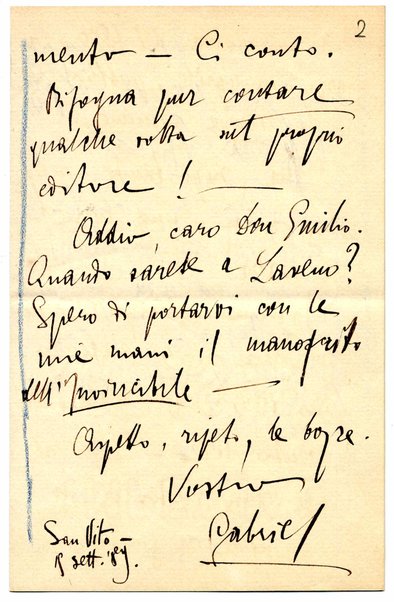 2
mento — Ci conto.
Bisogna pur contare
qualche volta sul proprio
editore! —
Addio, caro Don Emilio.
Quando sarete a Laveno?
Spero di portarvi con le
mie mani il manoscritto
dell'Invincibile —
Aspetto, ripeto, le bozze.
Vostro
Gabriel
San Vito —
sett. '89.